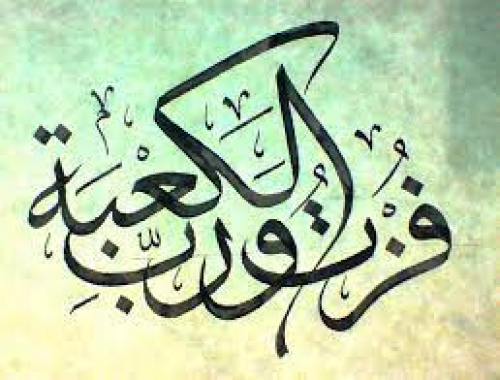 فُزْتُ وَرَبِّ الكَعْبَةِ